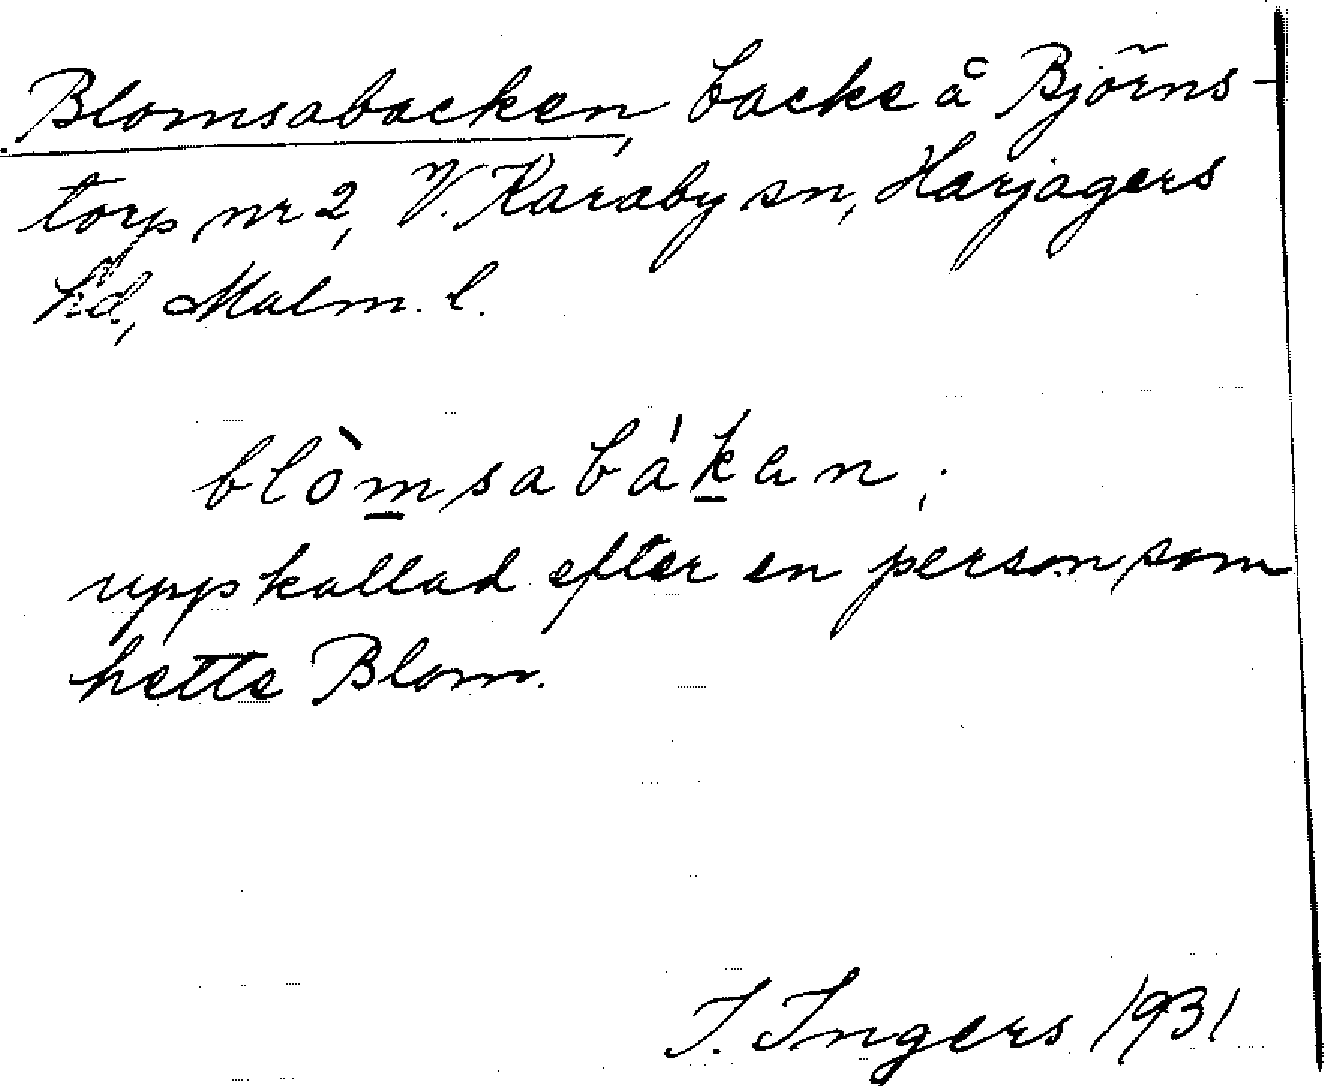 Blomsabacken, backe å Björns-
torp nr 2, V. Karaby sn, Harjagers
hd, Malm. l.
blòmsabákan;
uppkallad efter en person, som
hette Blom.
I. Ingers 1931